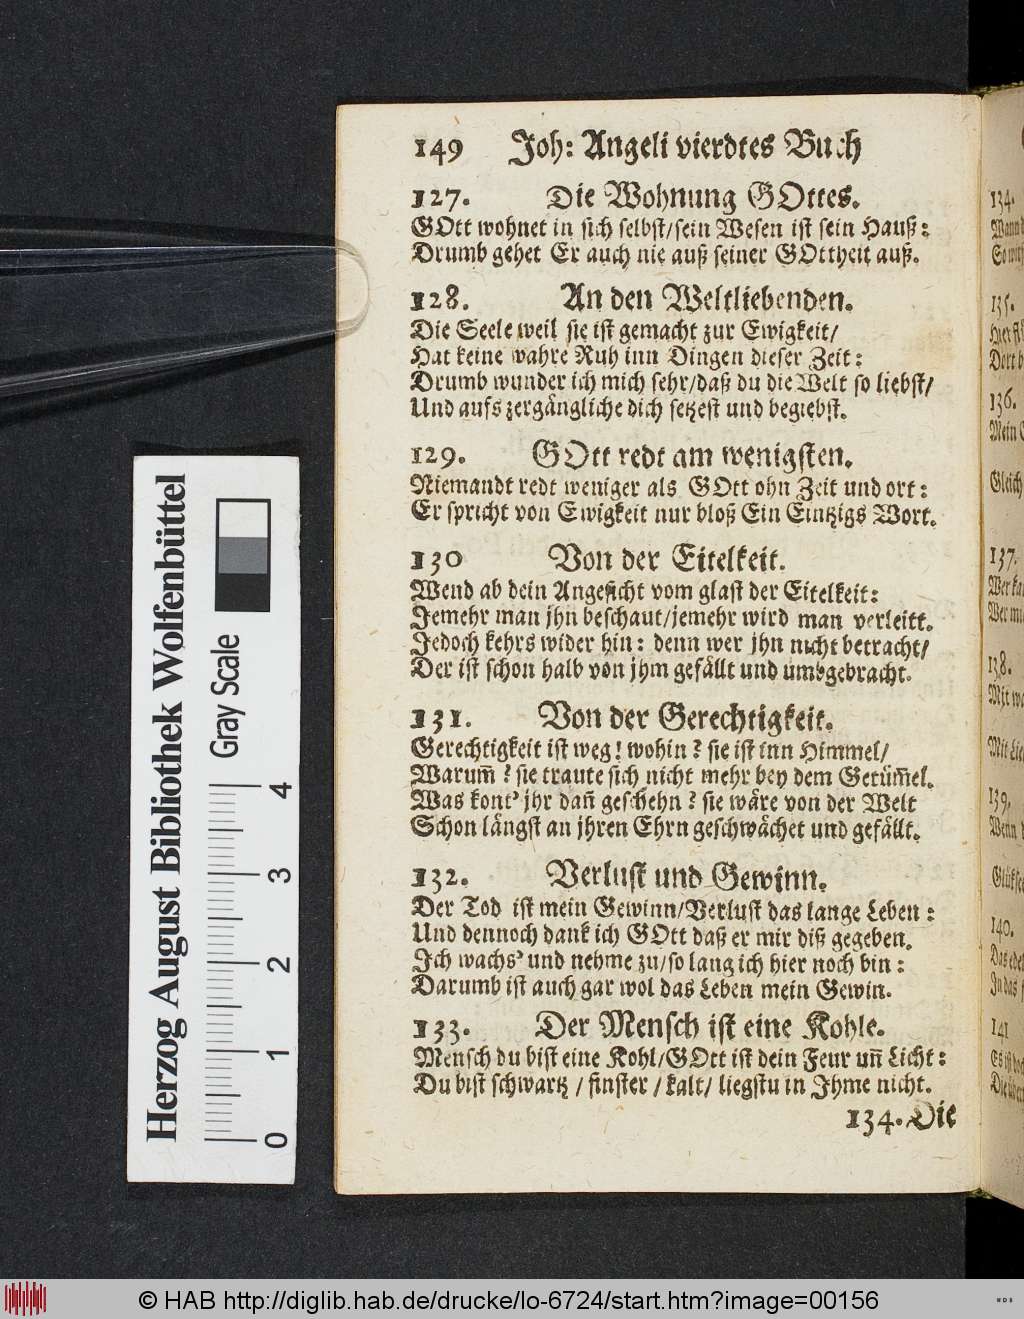 149 Joh: Angeli vierdtes Buch
127. Die Wohnung GOttes.
GOtt wohnet in sich selbst/sein Wesen ist sein Hauß:
Drumb gehet Er auch nie auß seiner GOttheit auß.
128. An den Weltliebenden.
Die Seele weil sie ist gemacht zur Ewigkeit/
Hat keine wahre Ruh inn Dingen dieser Zeit:
Drumb wunder ich mich sehr/daß du die Welt so liebst/
Und aufs zergängliche dich setzest und begiebst.
129. GOtt redt am wenigsten.
Niemandt redt weniger als GOtt ohn Zeit und ort:
Er spricht von Ewigkeit nur bloß Ein Eintzigs Wort.
130 Von der Eitelkeit.
Wend ab dein Angesicht vom glast der Eitelkeit:
Jemehr man jhn beschaut/jemehr wird man verleitt.
Jedoch kehrs wider hin: denn wer jhn nicht betracht/
Der ist schon halb von jhm gefällt und umbgebracht.
131. Von der Gerechtigkeit.
Gerechtigkeit ist weg! wohin? sie ist inn Himmel/
Warum̃? sie traute sich nicht mehr bey dem Getüm̃el.
Was kont' jhr dañ geschehn? sie wäre von der Welt
Schon längst an jhren Ehrn geschwächet und gefällt.
132. Verlust und Gewinn.
Der Tod ist mein Gewinn/Verlust das lange Leben:
Und dennoch dank ich GOtt daß er mir diß gegeben.
Ich wachs' und nehme zu/so lang ich hier noch bin:
Darumb ist auch gar wol das Leben mein Gewin.
133. Der Mensch ist eine Kohle.
Mensch du bist eine Kohl/GOtt ist dein Feur un̄ Licht:
Du bist schwartz / finster / kalt/ liegstu in Jhme nicht.
134. Die
134.
135.
136.
137.
138.
139.
140.
141
Herzog August Bibliothek Wolfenbüttel
Gray Scale
0 1 2 3 4
© HAB http://diglib.hab.de/drucke/lo-6724/start.htm?image=00156